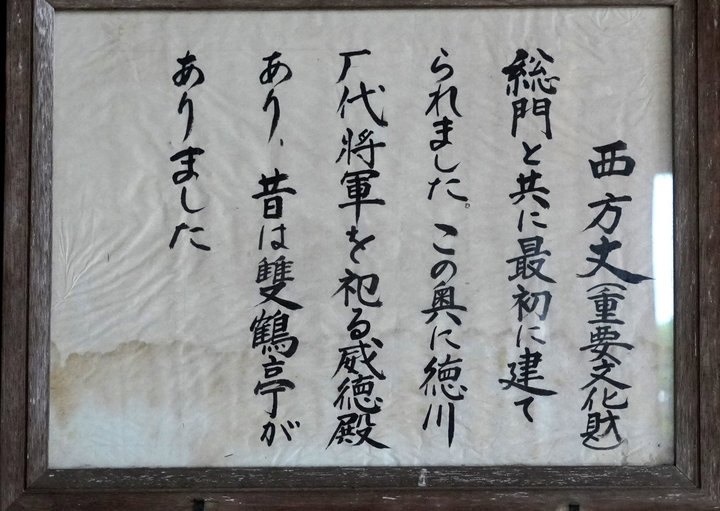 西方丈(重要文化財)
総門と共に最初に建て
られました。この奥に徳川
厂代将軍を祀る威徳殿
あり、昔は雙鶴亭が
ありました